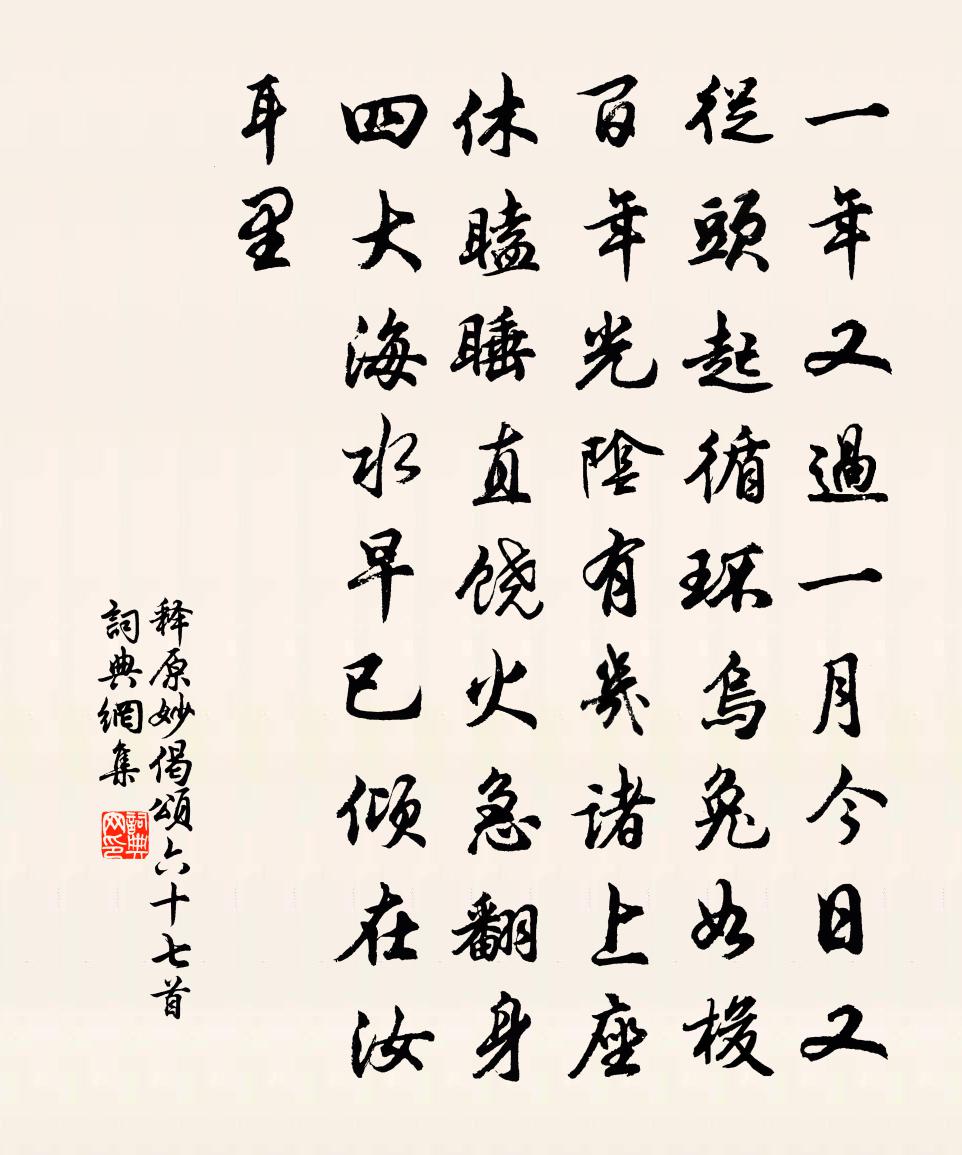 一年又過一月今日又
從頭起循环烏兔如梭
百年光陰有幾諸上座
休瞌睡直饶火急翻身
四大海水早已倾在汝
耳里
释原妙偈頌六十七首
詞典網集
詞典网印